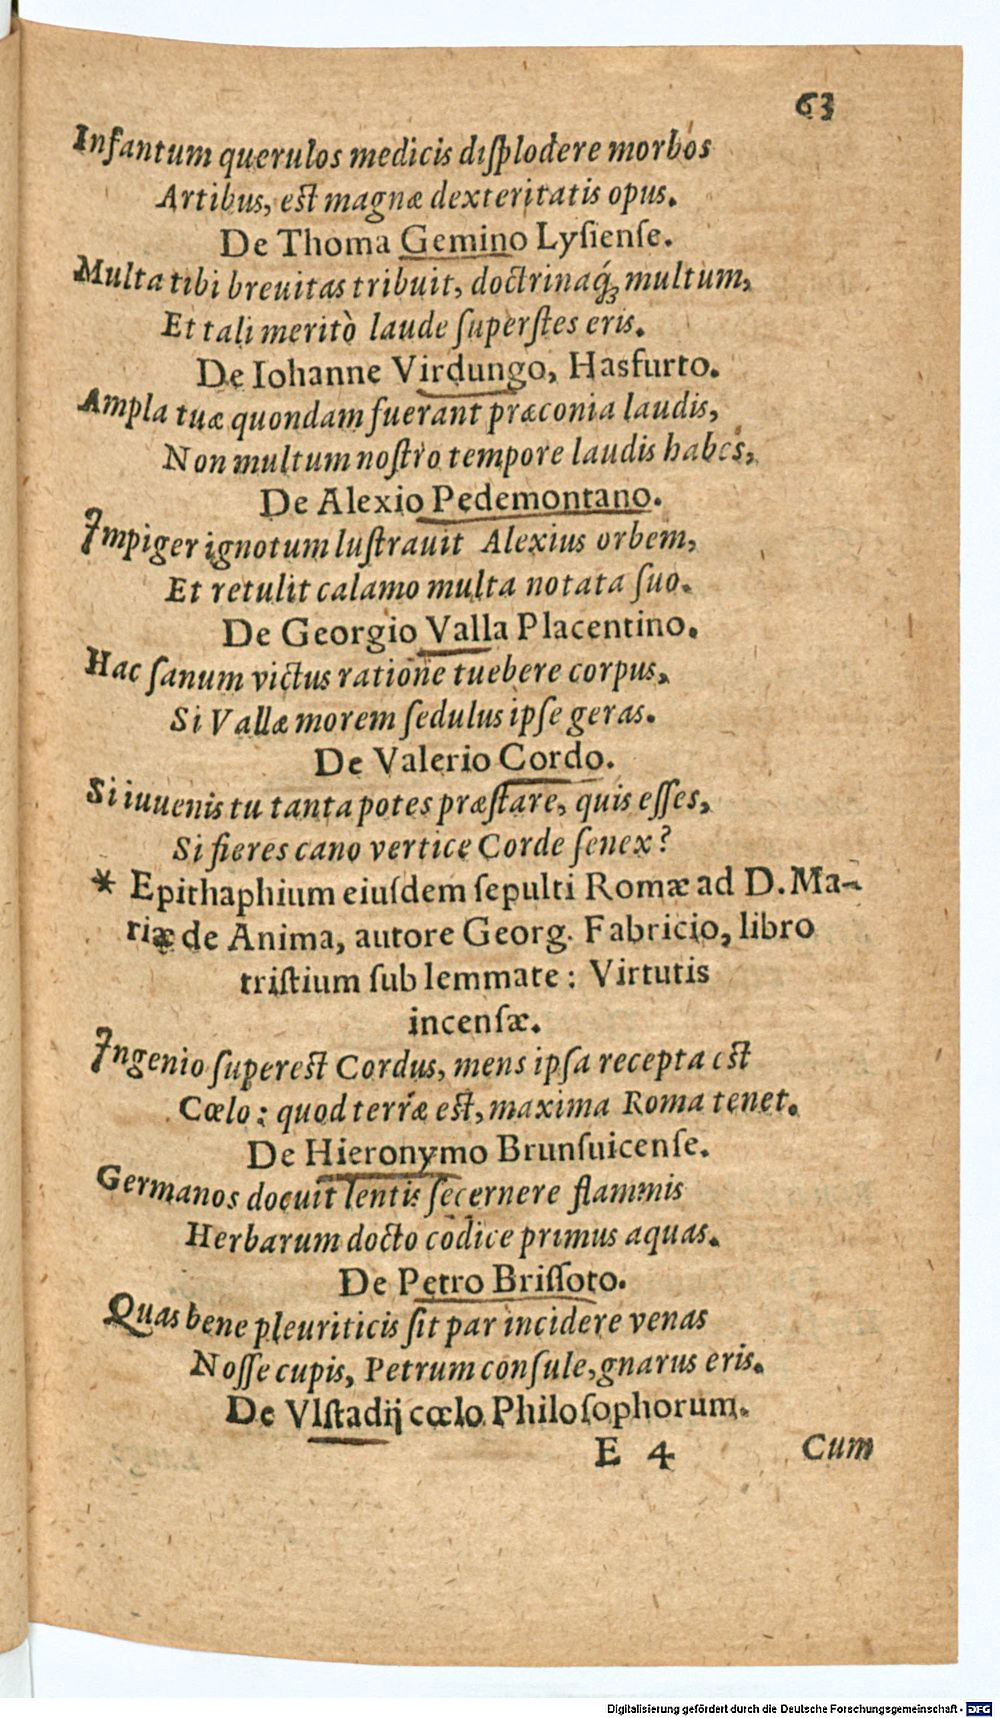 63
Infantum querulos medicis diſplodere morbos
Artibus, eſt magnæ dexteritatis opus.
De Thoma Gemino Lyſienſe.
Multa tibi breuitas tribuit, doctrinaq́ꝫ multum,
Et tali meritò laude ſuperſtes eris.
De Iohanne Virdungo, Hasfurto.
Ampla tuæ quondam fuerant præconia laudis,
Non multum noſtro tempore laudis habes,
De Alexio Pedemontano.
Impiger ignotum luſtrauit Alexius orbem,
Et retulit calamo multa notata ſuo.
De Georgio Valla Placentino.
Hac ſanum victus ratione tuebere corpus,
Si Vallæ morem ſedulus ipſe geras.
De Valerio Cordo.
Si iuuenis tu tanta potes præſtare, quis eſſes,
Si fieres cano vertice Corde ſenex?
* Epithaphium eiuſdem ſepulti Romæ ad D. Ma-
riæ de Anima, autore Georg. Fabricio, libro
triſtium ſub lemmate: Virtutis
incenſæ.
Ingenio ſupereſt Cordus, mens ipſa recepta eſt
Cœlo: quod terræ eſt, maxima Roma tenet.
De Hieronymo Brunſuicenſe.
Germanos docuit lentis ſecernere flammis
Herbarum docto codice primus aquas.
De Petro Briſſoto.
Quas bene pleuriticis ſit par incidere venas
Noſſe cupis, Petrum conſule, gnarus eris.
De Vlſtadij cœlo Philoſophorum.
E 4 Cum
Digitalisierung gefördert durch die Deutsche Forschungsgemeinschaft - DFG